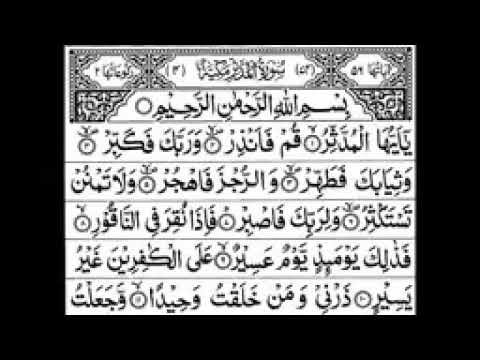 اٰيَاتُهَا ٥٦ سُوْرَةُ الْمُدَّثِّرِ مَكِّيَّةٌ رُكُوْعَاتُهَا ٢
بِسْمِ اللّٰهِ الرَّحْمٰنِ الرَّحِيْمِ
يٰٓاَيُّهَا الْمُدَّثِّرُ ۙ١ قُمْ فَاَنْذِرْ ۙ٢ وَرَبَّكَ فَكَبِّرْ ۙ٣
وَثِيَابَكَ فَطَهِّرْ ۙ٤ وَالرُّجْزَ فَاهْجُرْ ۙ٥ وَلَا تَمْنُنْ
تَسْتَكْثِرُ ۙ٦ وَلِرَبِّكَ فَاصْبِرْ ؕ٧ فَاِذَا نُقِرَ فِي النَّاقُوْرِ ۙ٨
فَذٰلِكَ يَوْمَىِٕذٍ يَّوْمٌ عَسِيْرٌ ۙ٩ عَلَى الْكٰفِرِيْنَ غَيْرُ
يَسِيْرٍ ١٠ ذَرْنِيْ وَمَنْ خَلَقْتُ وَحِيْدًا ۙ١١ وَّجَعَلْتُ